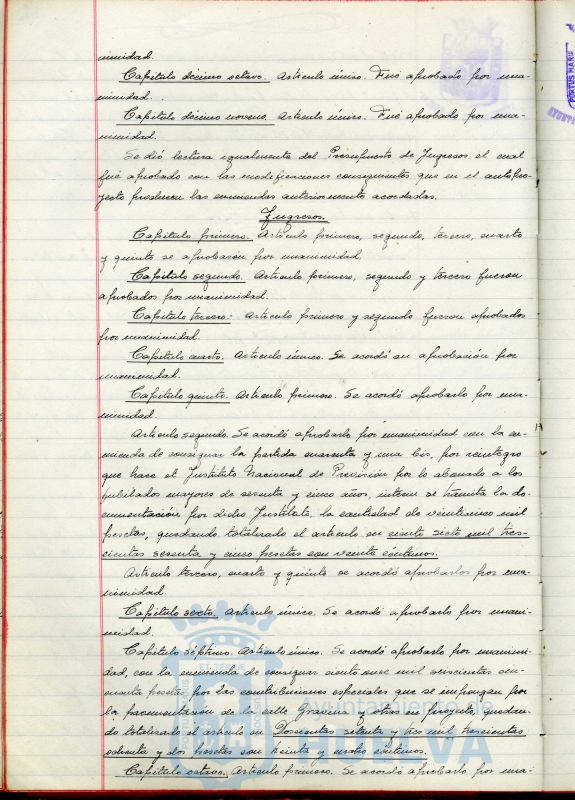 nimidad.
Capítulo décimo octavo. Artículo único. Fué aprobado por una-
nimidad.
Capítulo décimo noveno. Artículo único. Fué aprobado por una-
nimidad.
Se dió lectura igualmente del Presupuesto de Ingresos el cual
fué aprobado con las modificaciones consiguientes que en el antepro-
yecto producen las enmiendas anteriormente acordadas.
Ingresos.
Capítulo primero. Artículo primero, segundo, tercero, cuarto
y quinto se aprobaron por unanimidad
Capítulo segundo. Artículo primero, segundo y tercero fueron
aprobados por unanimidad.
Capítulo tercero: Artículo primero y segundo fueron aprobados
por unanimidad.
Capítulo cuarto. Artículo único. Se acordó su aprobación por
unanimidad.
Capítulo quinto. Artículo primero. Se acordó aprobarlo por una-
nimidad.
Artículo segundo. Se acordó aprobarlo por unanimidad con la en-
mienda de consignar la partida cuarenta y una bis, por reintegro
que hace el Instituto Nacional de Previsión por lo abonado a los
jubilados mayores de sesenta y cinco años, interin se tramita la do-
cumentación por dicho Instituto, la cantidad de veinticinco mil
pesetas, quedando totalizado el artículo en ciento siete mil tres-
cientas sesenta y cinco pesetas con veinte céntimos.
Artículo tercero, cuarto y quinto se acordó aprobarlos por una-
nimidad.
Capítulo sexto. Artículo único. Se acordó aprobarlo por unani-
midad.
Capítulo séptimo. Artículo único. Se acordó aprobarlo por unanimi-
dad, con la enmienda de consignar ciento once mil seiscientas cin-
cuenta pesetas por las contribuciones especiales que se impongan por
la pavimentación de la calle Gravina y otras en proyecto, quedan-
do totalizado el artículo en Doscientas setenta y tres mil trescientas
ochenta y dos pesetas con treinta y cuatro céntimos.
Capítulo octavo. Artículo primero. Se acordó aprobarlo por una-
Ayuntamiento de
HUELVA
PORTUS MARIS